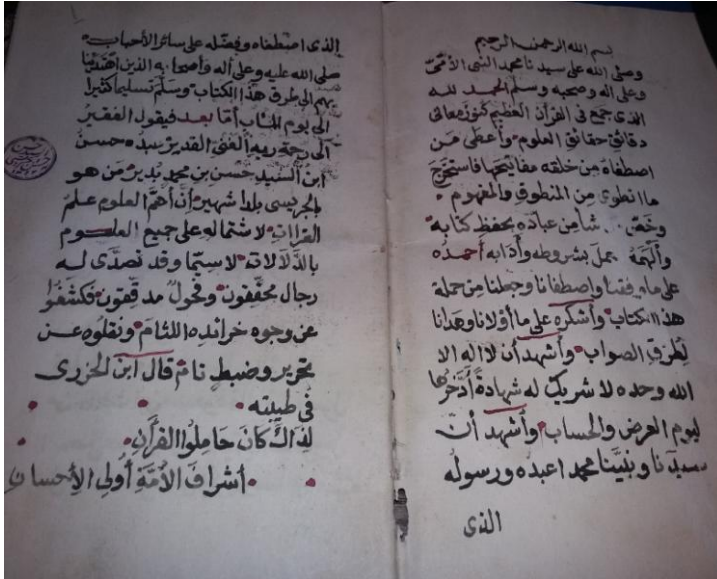 بسم الله الرحمن الرحيم
وصلى الله على سيدنا محمد النبى الأمىّ
وعلى اله وصحبه وسلم الحمد لله
الذى جمع فى القرآن العظيم كنوز معانى
دقائق حقائق العلوم وأعطى من
اصطفاه من خلقه مفاتيحها فاستخرج
ما انطوى من المنطوق والمفهوم
وخصّ شا من عباده بحفظ كتابه
وألهمه بعمل بشروطه وأدابه أحمده
على ما وفقنا واصطفانا وجعلنا من حملة
هذا الكتاب وأشكره على ما أولانا وهدانا
لطرق الصواب وأشهد أن لا اله الا
الله وحده لا شريك له شهادة أدّخرها
ليوم العرض والحساب وأشهد أنّ
سيدنا ونبينا محمدا عبده ورسوله
الذى
الذى اصطفاه وفضّله على سائر الأحباب
صلى الله عليه وعلى أله وأصحابه الذين
بهم الى طرق هذا الكتاب وسلم تسليما كثيرا
الى يوم المئاب أما بعد فيقول الفقير
الى رحمة ربه الغنى القدير سيده حسن
ابن السيد حسن بن محمد بدير من هو
بالجريسى بلدا شهير انّ أهمّ العلوم علم
القراات لاشتماله على جميع العلوم
بالدّلالات لا سيّما وقد تصدّى له
رجال محققون وفحول مدققون فكشفوا
عن وجوه خرائده اللثام ونقلوه عن
تحرير وضبط تام قال ابن الجزرى
فى طيبته
لذاك كان حاملوا القرآن
أشراف الأمّة أولى الأحسان